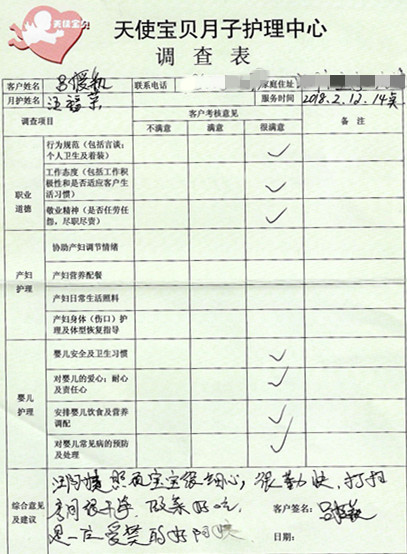 天使宝贝
天使宝贝月子护理中心
调查表
客户姓名 联系电话 家庭住址
月护姓名 汪福荣 服务时间 2018.2.13.14
调查项目 客户考核意见 备注
不满意 满意 很满意
职业道德
行为规范（包括言谈；个人卫生及着装）
工作态度（包括工作积极性和是否适应客户生活习惯）
敬业精神（是否任劳任怨，尽职尽责）
产妇护理
协助产妇调节情绪
产妇营养配餐
产妇日常生活照料
产妇身体（伤口）护理及体型恢复指导
婴儿护理
婴儿安全及卫生习惯
对婴儿的爱心；耐心及责任心
安排婴儿饮食及营养调配
对婴儿常见病的预防及处理
综合意见及建议
照顾宝宝很细心，很勤快，打扫
房间很干净，做菜好吃
是一位受赞的好阿姨
客户签名：
日期：